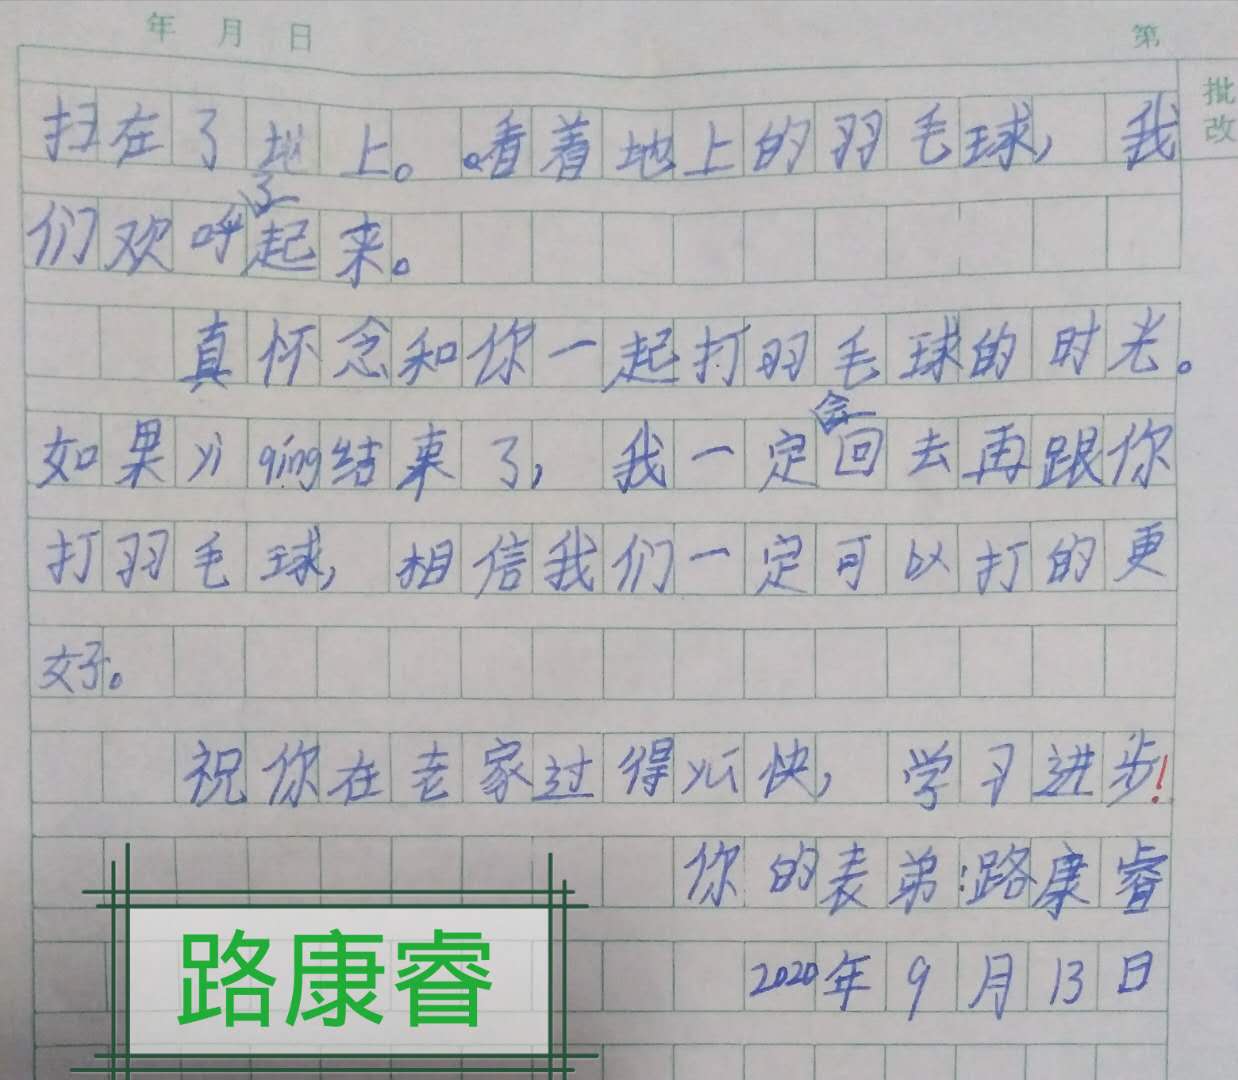 年 月 日 第
批改
扫在了地上。看着地上的羽毛球，我
们欢呼了起来。
真怀念和你一起打羽毛球的时光。
如果yì qíng结束了，我一定会回去再跟你
打羽毛球，相信我们一定可以打的更
好。
祝你在老家过得yú快，学习进步！
你的表弟：路康睿
2020年9月13日
路康睿